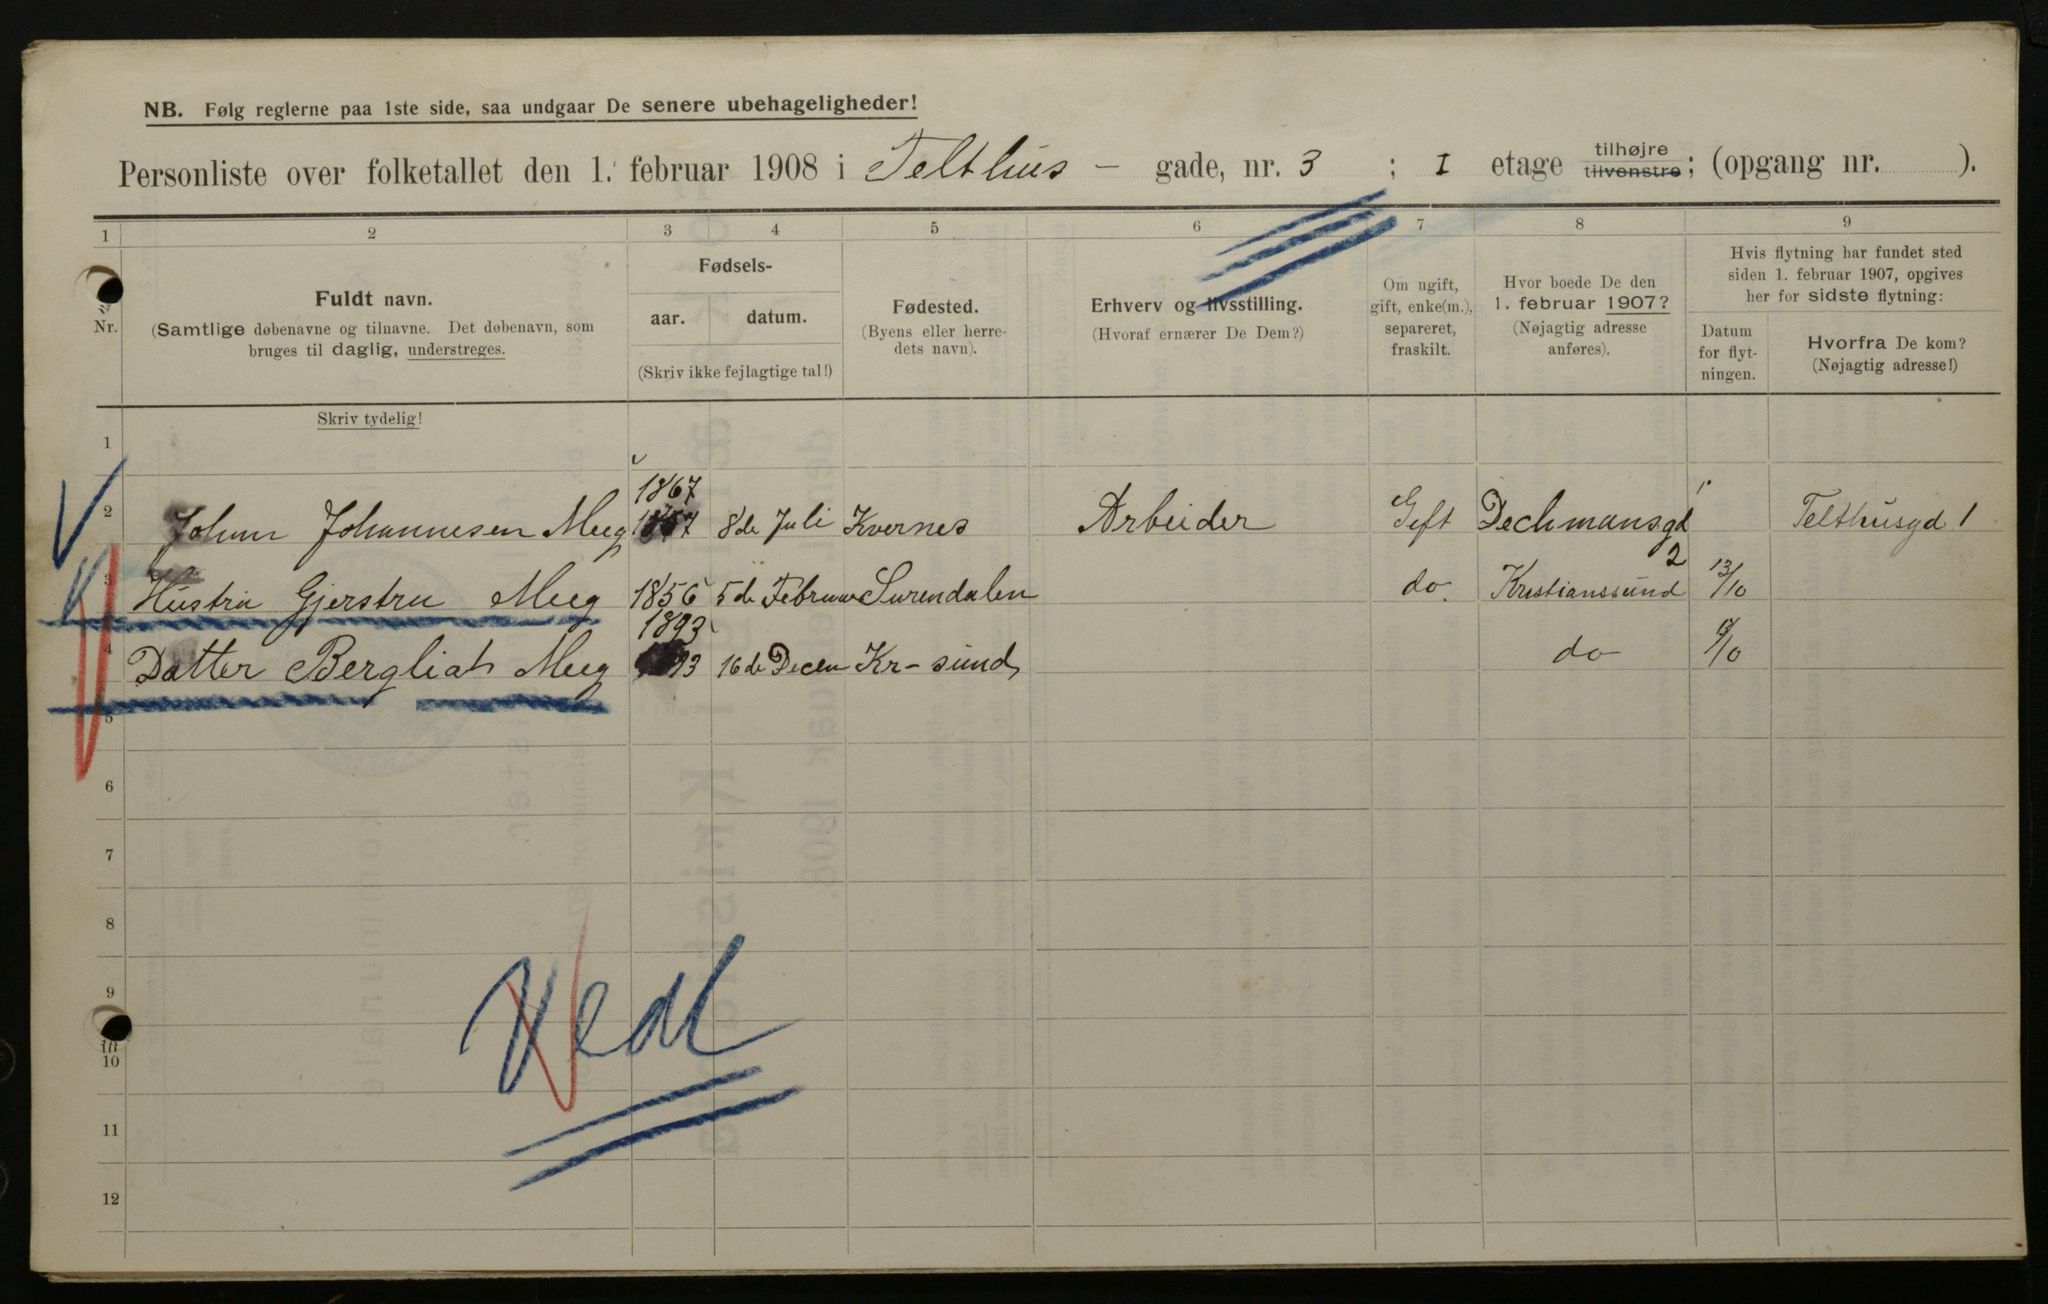 NB. Følg reglerne paa 1ste side, saa undgaar De senere ubehageligheder!
Personliste over folketallet den 1. februar 1908 i Telthus - gade, nr. 3 ; I etage tilhøjre tilvenstre; (opgang nr. ).
1 2 3 4 5 6 7 8 9
Nr.
Fuldt navn.
(Samtlige døbenavne og tilnavne. Det døbenavn, som
bruges til daglig, understreges.
Fødsels-
aar. datum.
(Skriv ikke fejlagtige tal!)
Fødested.
(Byens eller herre-
dets navn).
Erhverv og livsstilling.
(Hvoraf ernærer De Dem?)
Om ugift,
gift, enke(m.),
separeret,
fraskilt.
Hvor boede De den
1. februar 1907?
(Nøjagtig adresse
anføres).
Hvis flytning har fundet sted
siden 1. februar 1907, opgives
her for sidste flytning:
Datum
for flyt-
ningen.
Hvorfra De kom?
(Nøjagtig adresse!)
Skriv tydelig!
1
1867
2 Johan Johannesen Meeg 1867 8de Juli Kvernes Arbeider Gift Dechmansgd 2 Telthusgd 1
3 Hustru Gjerstru Meeg 1856 5de Februar Surendalen do. Kristianssund 13/10
1893
4 Datter Bergliat Meeg 93 16de Decem Kr-sund do
5
6
7
8
9
10
11
12
Vedl